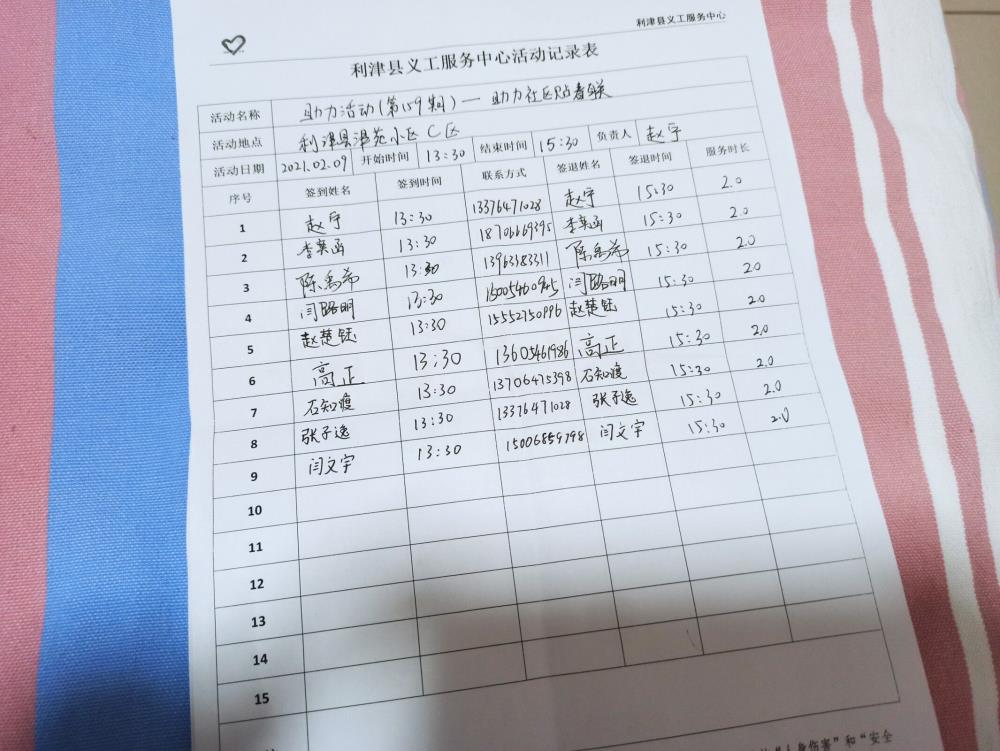 利津县义工服务中心
利津县义工服务中心活动记录表
活动名称 助力活动(第159期)— 助力社区贴春联
活动地点 利津县津苑小区C区
活动日期 2021.02.09 开始时间 13:30 结束时间 15:30 负责人 赵宇
序号 签到姓名 签到时间 联系方式 签退姓名 签退时间 服务时长
1 赵宇 13:30 13376471028 赵宇 15:30 2.0
2 李奕函 13:30 18706669395 李奕函 15:30 2.0
3 陈禹希 13:30 13963183311 陈禹希 15:30 2.0
4 闫路明 13:30 15:30 2.0
5 赵楚钰 13:30 15552750996 赵楚钰 15:30 2.0
6 高正 13:30 13605461986 高正 15:30 2.0
7 石知渡 13:30 13706475398 石知渡 15:30 2.0
8 张子逸 13:30 13376471028 张子逸 15:30 2.0
9 闫文宇 13:30 15006859798 闫文宇 15:30 2.0
10
11
12
13
14
15
“人身伤害”和“安全